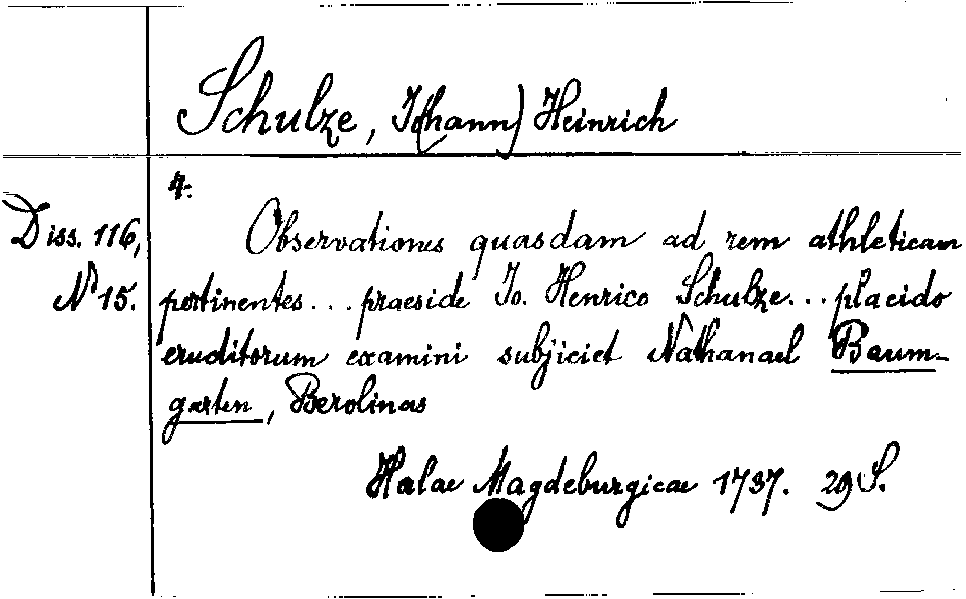 Schulze, J(ohann) Heinrich
4.
Diss. 116,
N° 15.
Observationes quasdam ad rem athleticam
pertinentes... praeside Io. Henrico Schulze... placido
eruditorum examini subjiciet Nathanael Baum-
garten, Berolinas
Halae Magdeburgicae 1737. 29 S.